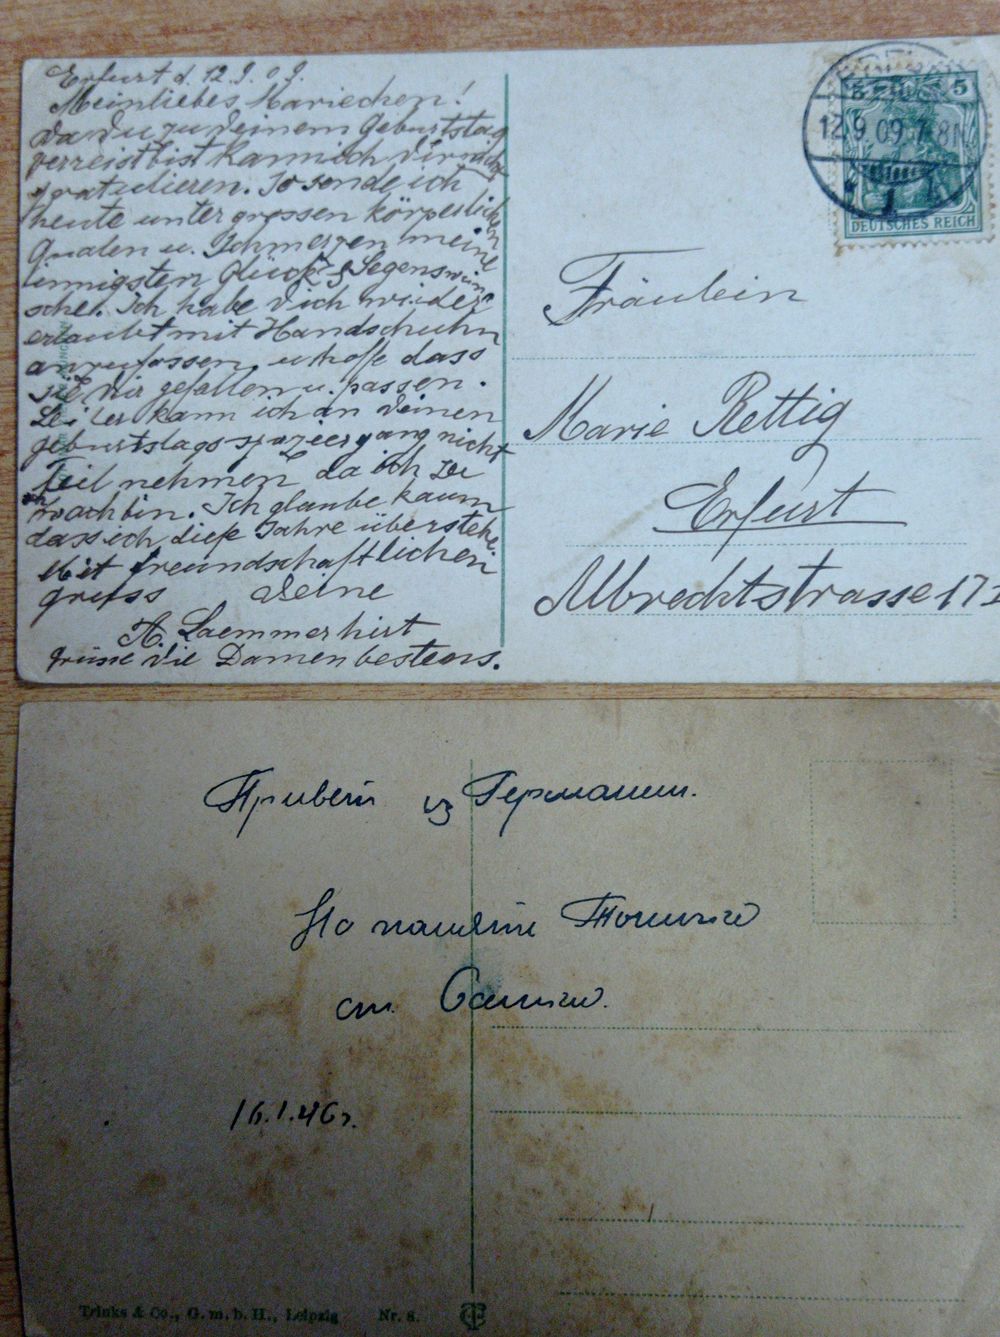 Erfurt d. 12.9.09.
Meinliebes Mariechen!
Da du zu deinem Geburtstag
verreist bist kann ich dir nicht
gratulieren. So sende ich
heute unter grossen körperlichen
Qualen u. Schmerzen meine
innigsten Glück & Segenswün
sche. Ich habe dich wieder
erlaubt mit Handschuhn
anzufassen, u hoffe dass
sie dir gefallen u. passen.
Leider kann ich an deinen
geburtstagsspaziergang nicht
Teil nehmen da ich zu
schwach bin. Ich glaube kaum
dass ich diese Jahre überstehe.
Mit freundschaftlichen
gruss deine
A. Laemmerhirt
grüsse die Damen bestens.
12.9.09.7-8N
5 5
DEUTSCHES REICH
Fräulein
Marie Rettig
Erfurt
Albrechtstrasse 17 I
Привет из Германии.
На память
от
16.1.46г.
Trinks & Co., G. m. b. H., Leipzig Nr. 8.